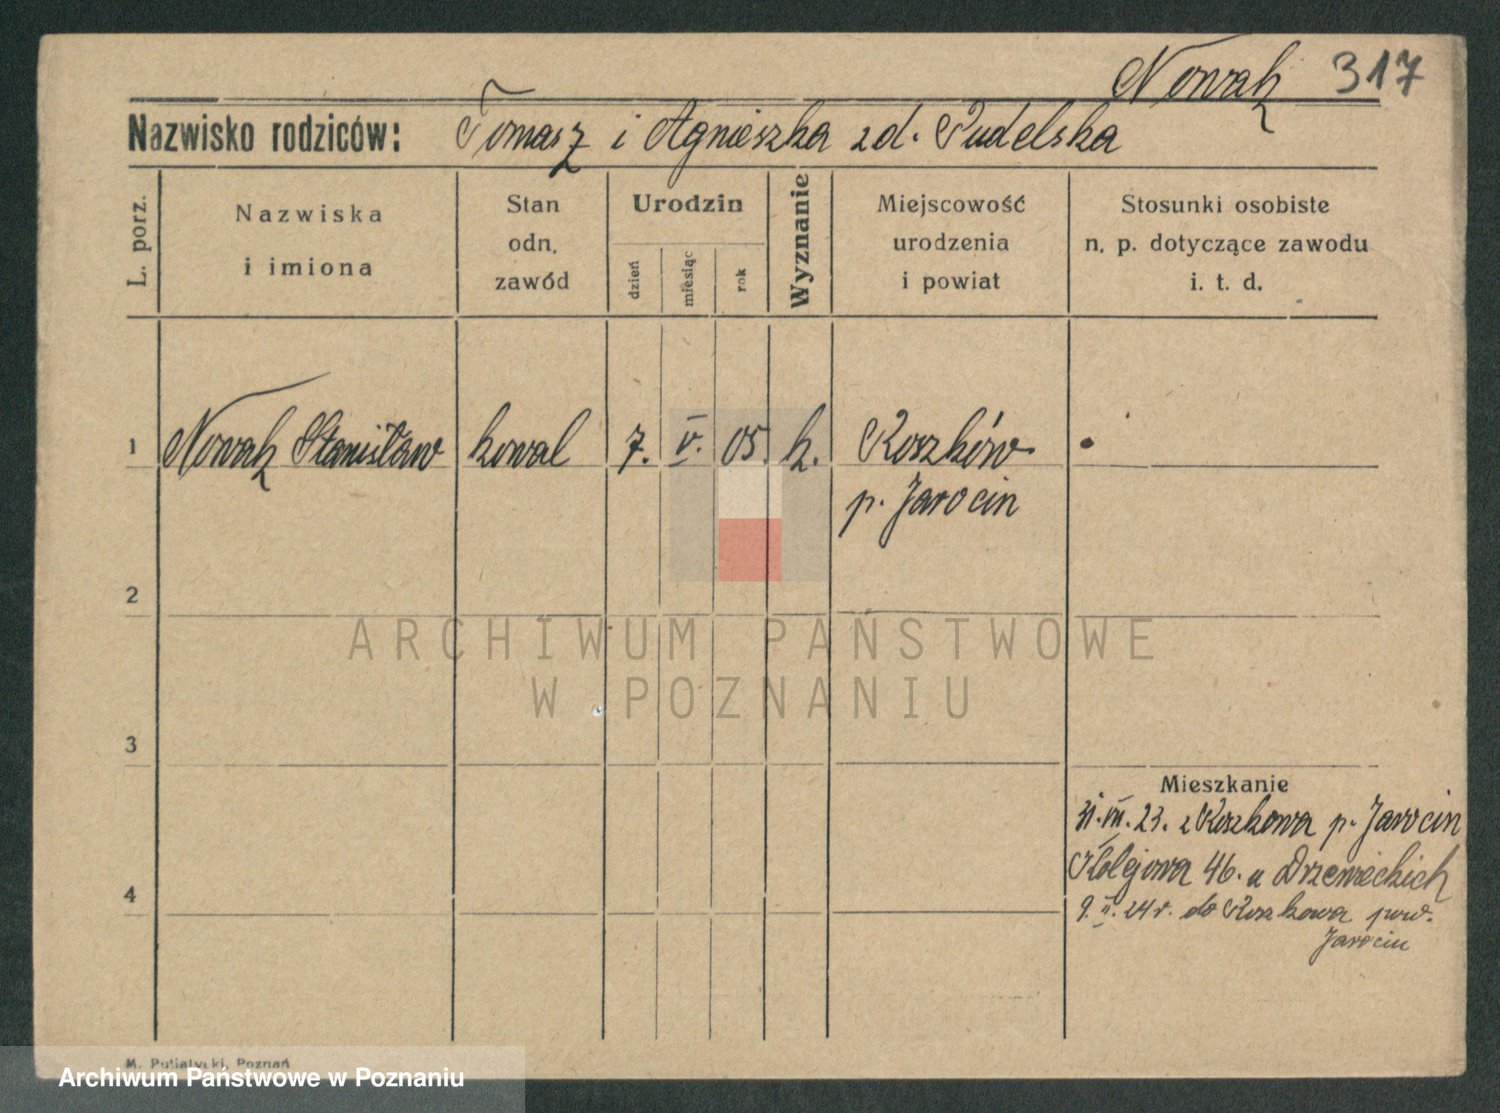 Nowak 317
Nazwisko rodziców: Tomasz i Agnieszka zd. Pudelska
L. porz.
Nazwiska
i imiona
Stan
odn.
zawód
Urodzin
dzień
miesiąc
rok
Wyznanie
Miejscowość
urodzenia
i powiat
Stosunki osobiste
n. p. dotyczące zawodu
i. t. d.
1 Nowak Stanisław kowal 7. V. 05. k. Koszków
p. Jarocin
2
ARCHIWUM PAŃSTWOWE
W POZNANIU
3
Mieszkanie
31. VII. 23. z Koszkowa p. Jarocin
Kolejowa 46. u Drzewieckich
4
9. II. 24 r. do Koszkowa pow.
Jarocin
M. Putiatycki, Poznań
Archiwum Państwowe w Poznaniu